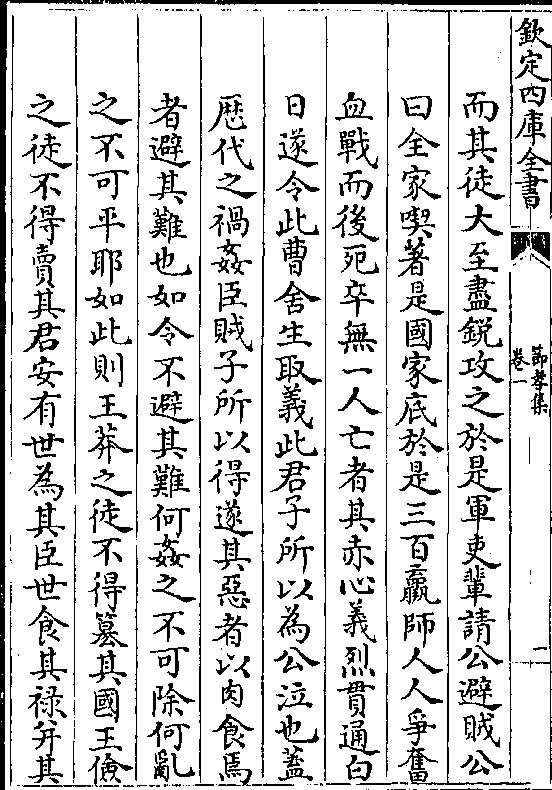 欽定四庫全書
節孝集
卷一
二
而其徒大至盡鋭攻之於是軍吏輩請公避賊公
曰全家喫著是國家底於是三百羸師人人爭奮
血戰而後死卒無一人亡者其赤心義烈貫通白
日遂令此曹舍生取義此君子所以為公泣也蓋
歴代之禍姦臣賊子所以得遂其惡者以肉食焉
者避其難也如令不避其難何姦之不可除何亂
之不可平耶如此則王莽之徒不得簒其國王儉
之徒不得賣其君安有世為其臣世食其祿并其